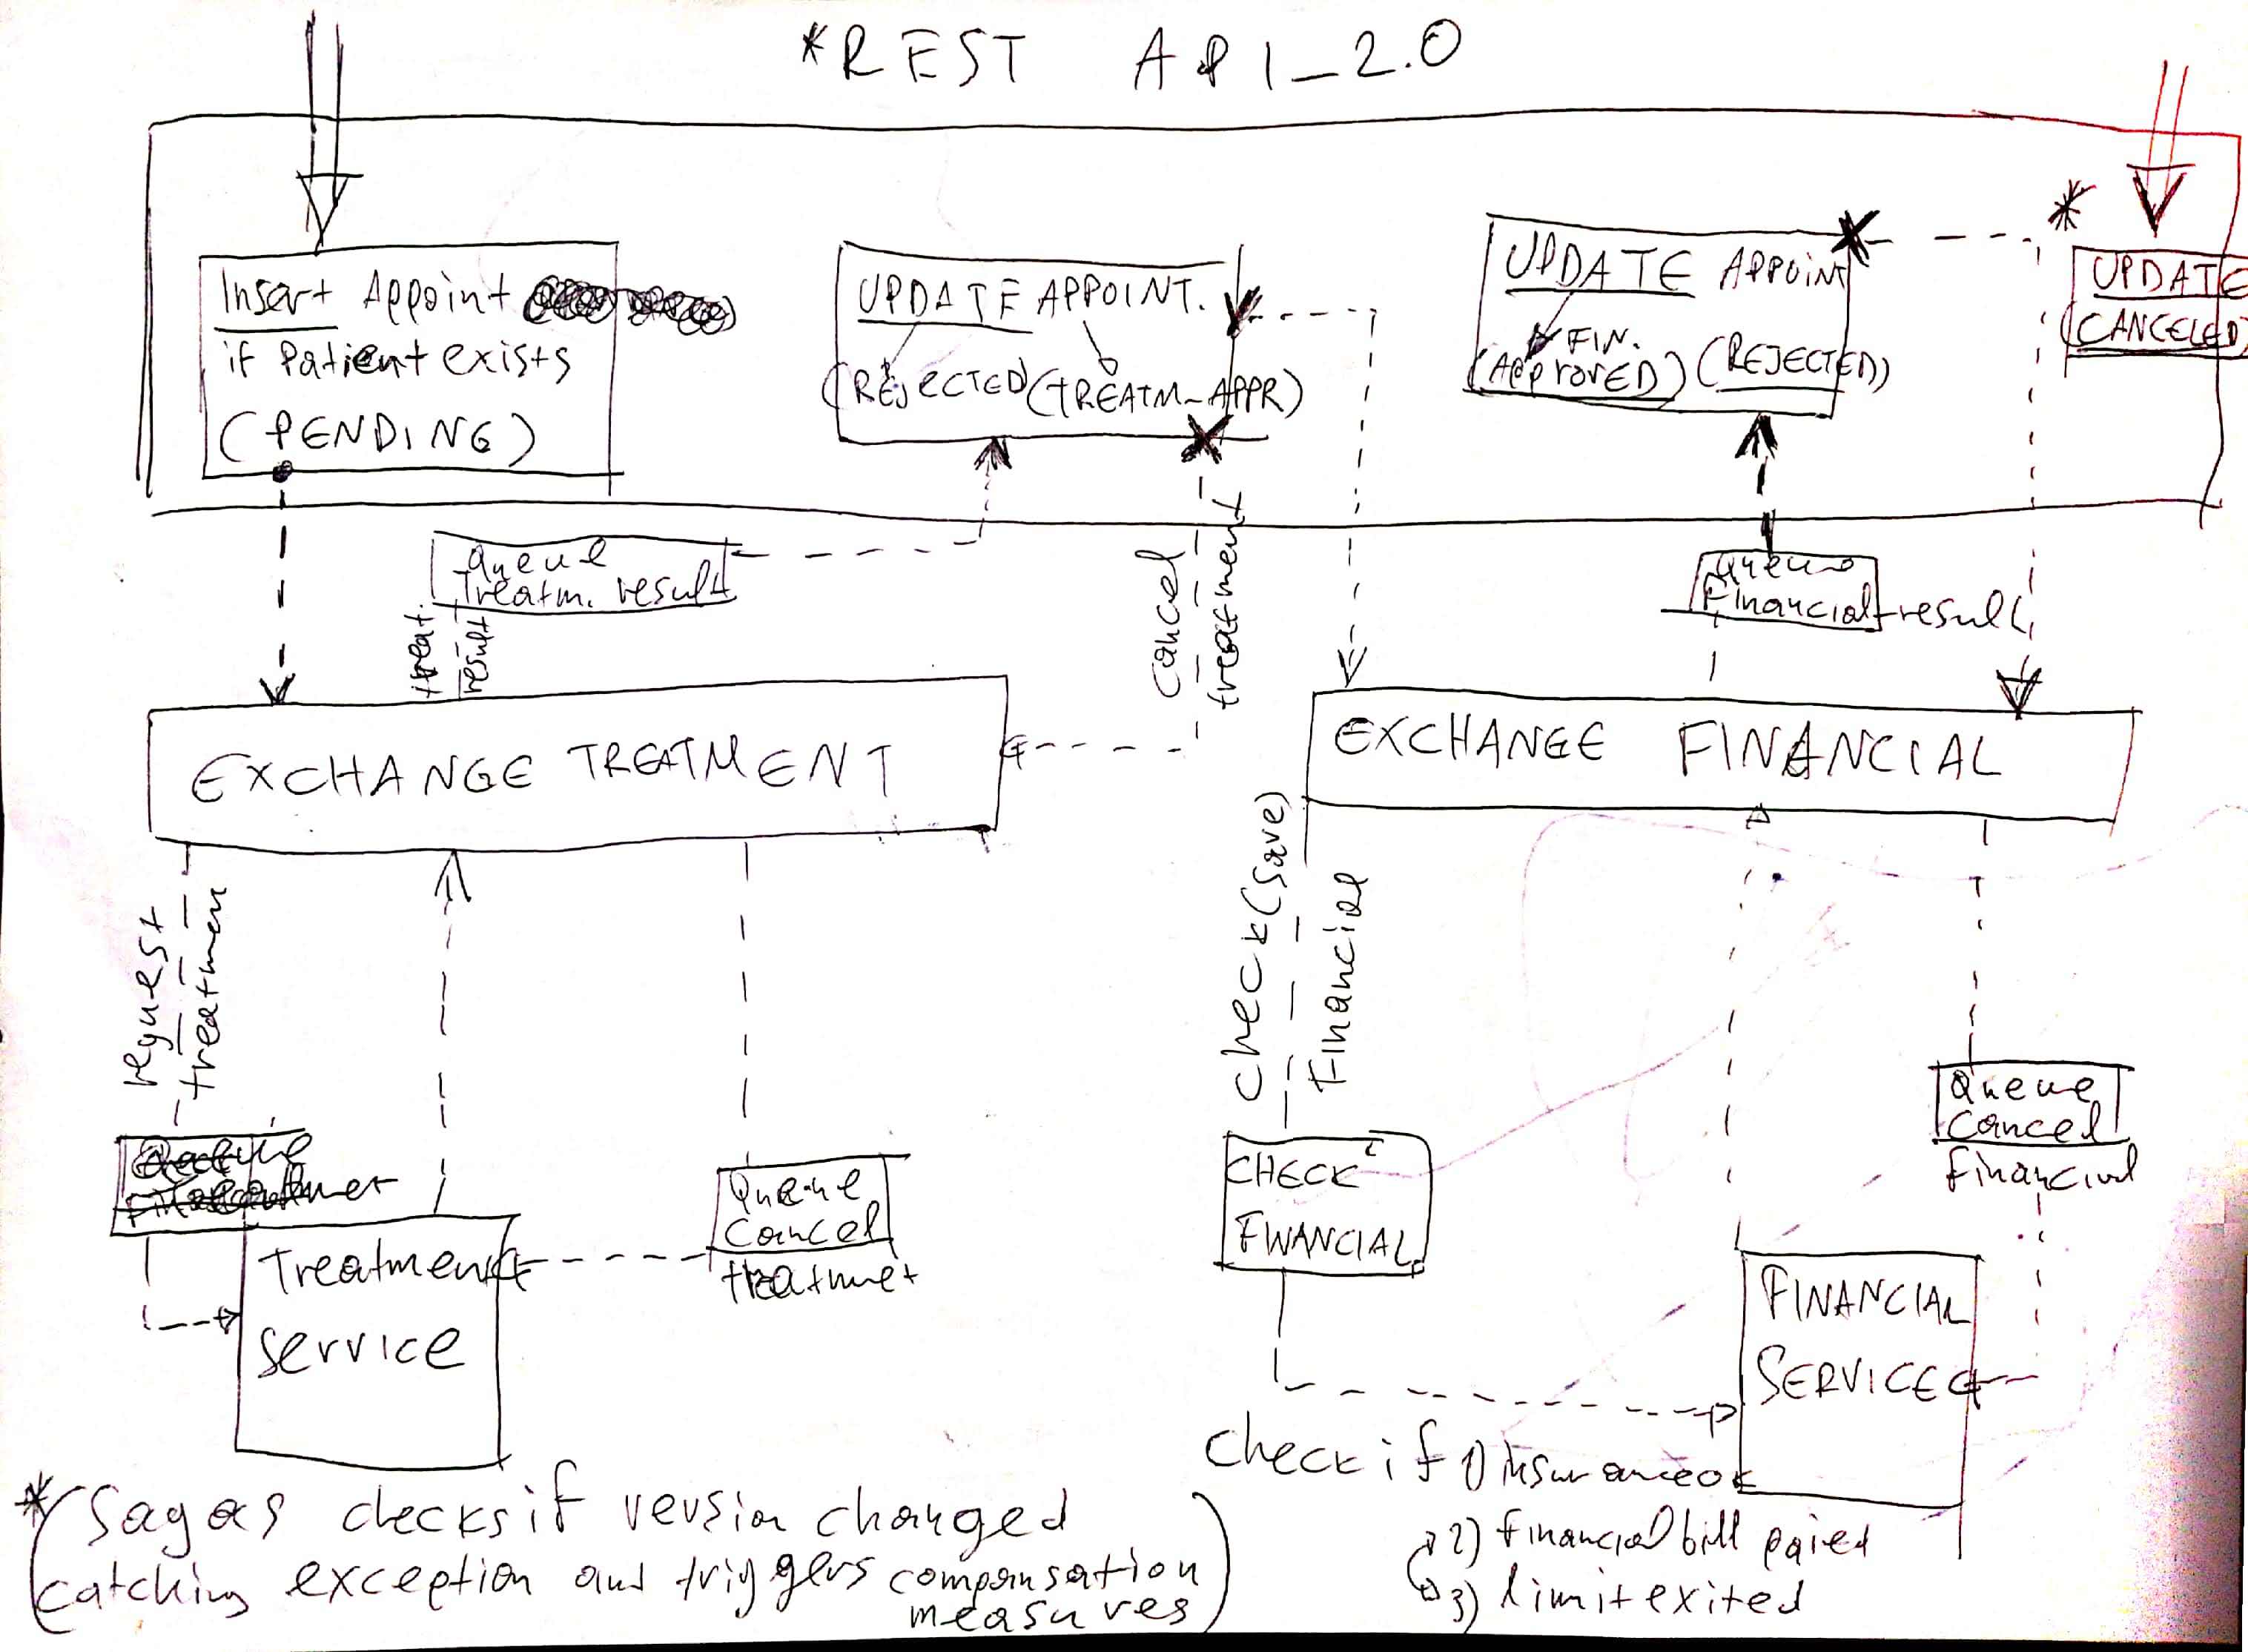 *REST API_2.0
Insert Appoint
if Patient exists
(PENDING)
UPDATE APPOINT.
(REJECTED) (TREATM-APPR)
UPDATE APPOINT
FIN.
(APPROVED) (REJECTED)
*
UPDATE
(CANCELED)
Queue
Treatm. result
treat.
result
cancel
treatment
Queue
Financial result
EXCHANGE TREATMENT
EXCHANGE FINANCIAL
request
treatmen
check (save)
Financial
Queue
cancel
treatmet
CHECK
FINANCIAL
Queue
cancel
financial
Treatment
service
FINANCIAL
SERVICE
check if 1) insurance ok
2) financial bill paied
3) limit exited
* (Sagas checks if version changed
catching exception and triggers compansation
measures)